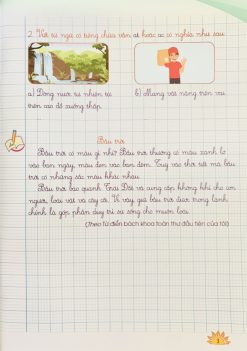 2. Viết từ ngữ có tiếng chứa vần ai hoặc ac có nghĩa như sau:
a) Dòng nước từ nhiên từ
trên cao đổ xuống thấp.
b) Mang vật nặng trên vai.
Bầu trời
Bầu trời có màu gì nhỉ? Bầu trời thường có màu xanh lơ
vào ban ngày, màu đen vào ban đêm. Tuỳ vào thời tiết mà bầu
trời có những sắc màu khác nhau.
Bầu trời bao quanh Trái Đất và cung cấp không khí cho con
người, loài vật và cây cối. Vì vậy, giữ bầu trời được trong lành
chính là góp phần duy trì sự sống cho muôn loài.
(Theo Từ điển bách khoa toàn thư đầu tiên của tôi)
3